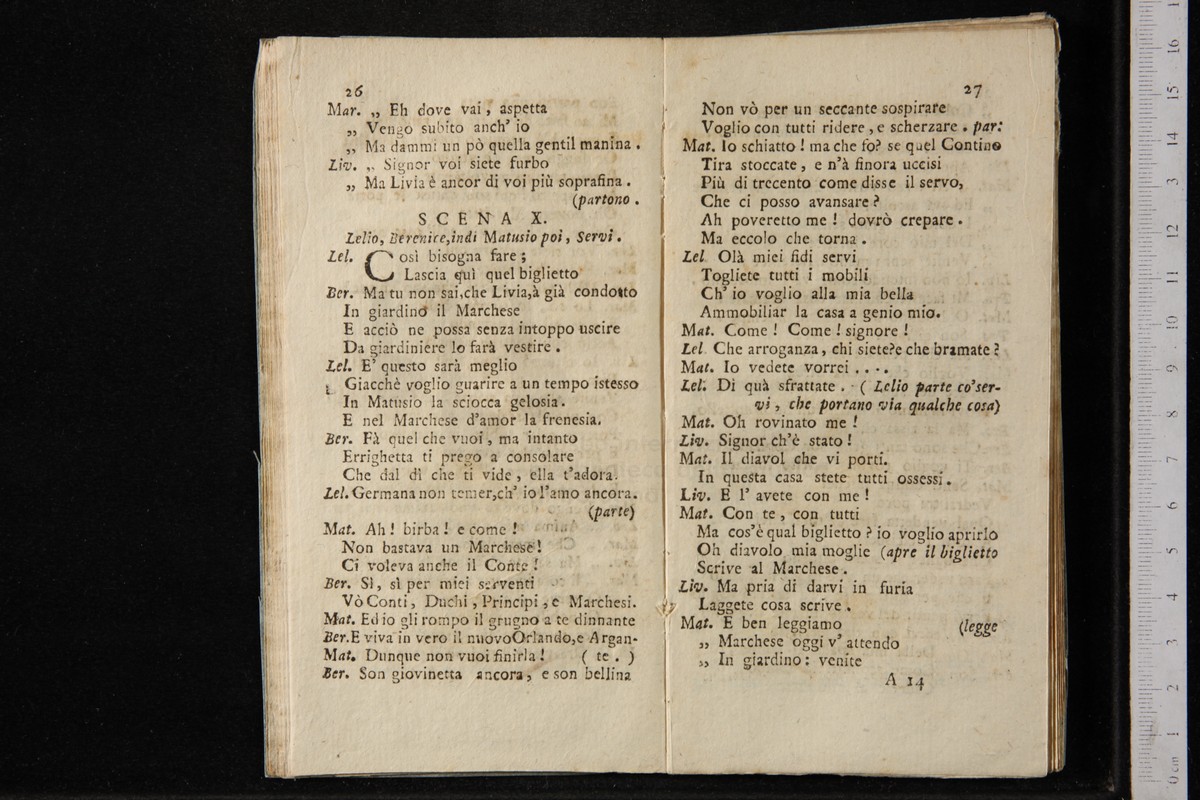 26
Mar. „ Eh dove vai, aspetta
„ Vengo subito anch' io
„ Ma dammi un pò quella gentil manina .
Liv. „ Signor voi siete furbo
„ Ma Livia è ancor di voi più soprafina .
(partono .
SCENA X.
Lelio, Berenice,indi Matusio poi, Servi .
Lel. Così bisogna fare ;
Lascia quì quel biglietto
Ber. Ma tu non sai,che Livia,à già condotto
In giardino il Marchese
E acciò ne possa senza intoppo uscire
Da giardiniere lo farà vestire .
Lel. E' questo sarà meglio
Giacchè voglio guarire a un tempo istesso
In Matusio la sciocca gelosia .
E nel Marchese d'amor la frenesia.
Ber. Fà quel che vuoi, ma intanto
Errighetta ti prego a consolare
Che dal dì che ti vide, ella t'adora.
Lel. Germana non temer,ch' io l'amo ancora.
(parte)
Mat. Ah ! birba ! e come !
Non bastava un Marchese !
Ci voleva anche il Conte !
Ber. Sì, sì per miei serventi
Vò Conti, Duchi, Principi, e Marchesi.
Mat. Ed io gli rompo il grugno a te dinnante
Ber. E viva in vero il nuovo Orlando,e Argan-
Mat. Dunque non vuoi finirla ! ( te . )
Ber. Son giovinetta ancora, e son bellina
27
Non vò per un seccante sospirare
Voglio con tutti ridere, e scherzare . par:
Mat. Io schiatto ! ma che fo? se quel Contino
Tira stoccate, e n'à finora uccisi
Più di trecento come disse il servo,
Che ci posso avansare ?
Ah poveretto me ! dovrò crepare .
Ma eccolo che torna .
Lel Olà miei fidi servi
Togliete tutti i mobili
Ch' io voglio alla mia bella
Ammobiliar la casa a genio mio.
Mat. Come ! Come ! signore !
Lel Che arroganza, chi siete?e che bramate ?
Mat. Io vedete vorrei . . . .
Lel. Di quà sfrattate . ( Lelio parte co'ser-
vi, che portano via qualche cosa)
Mat. Oh rovinato me !
Liv. Signor ch'è stato !
Mat. Il diavol che vi porti.
In questa casa stete tutti ossessi .
Liv. E l' avete con me !
Mat. Con te, con tutti
Ma cos'è qual biglietto ? io voglio aprirlo
Oh diavolo mia moglie (apre il biglietto
Scrive al Marchese .
Liv. Ma pria di darvi in furia
Laggete cosa scrive .
Mat. E ben leggiamo (legge
„ Marchese oggi v' attendo
„ In giardino : venite
A 14